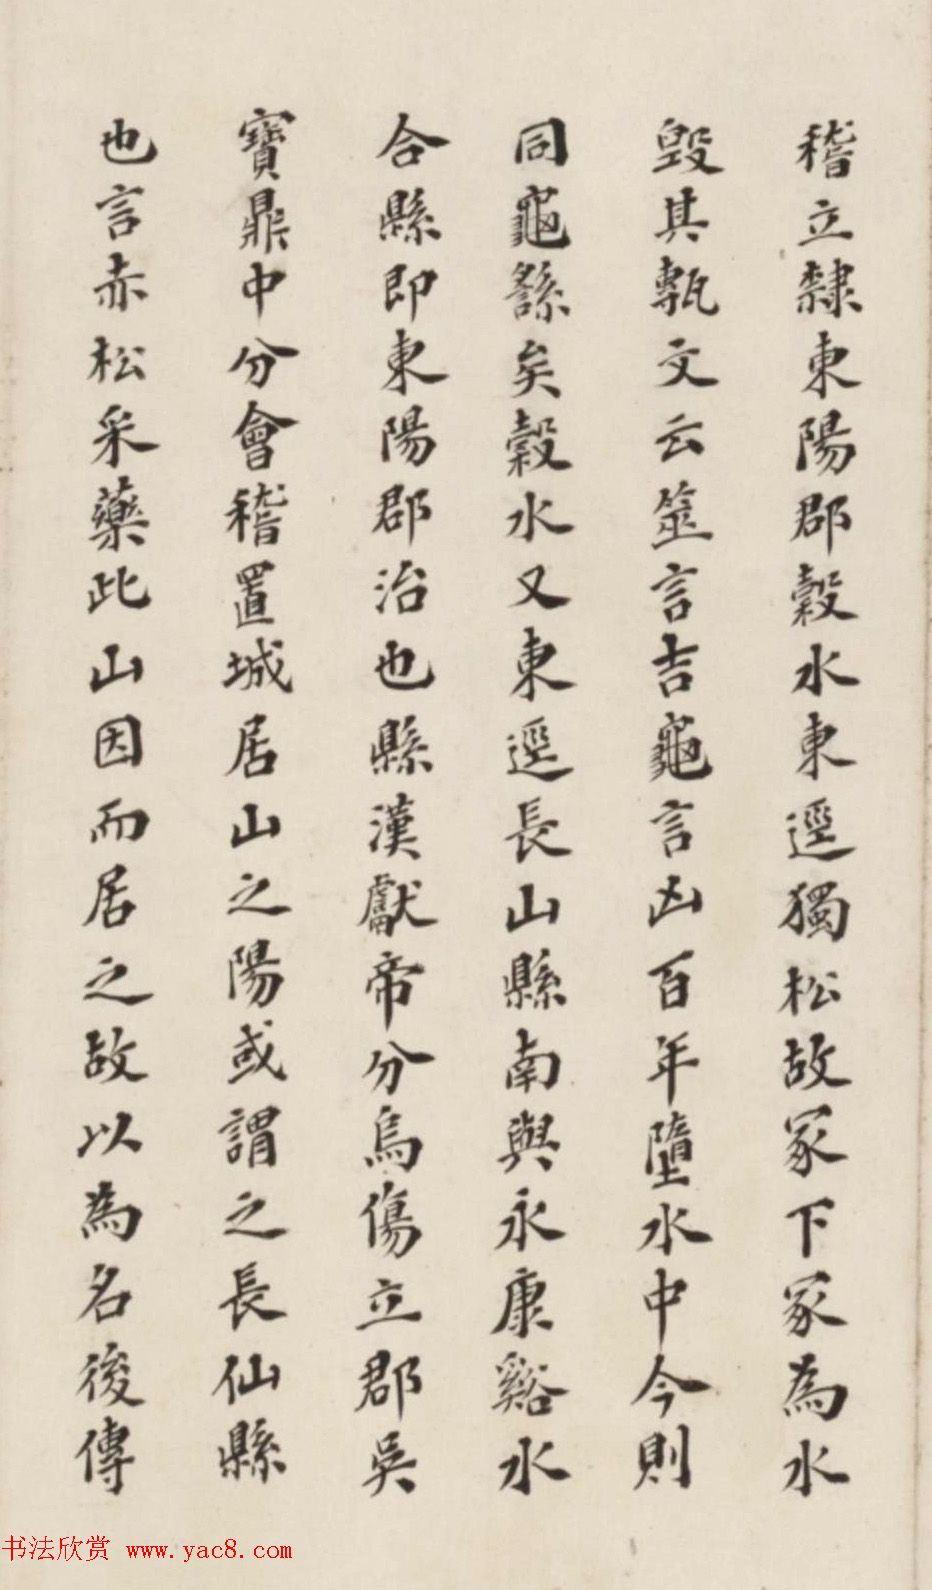 稽立隸東陽郡穀水東逕獨松故冢下冢為水
毀其甎文云筮言吉龜言凶百年墮水中今則
同龜繇矣穀水又東逕長山縣南與永康谿水
合縣即東陽郡治也縣漢獻帝分烏傷立郡吳
寶鼎中分會稽置城居山之陽或謂之長仙縣
也言赤松采藥此山因而居之故以為名後傳
书法欣赏 www.yac8.com